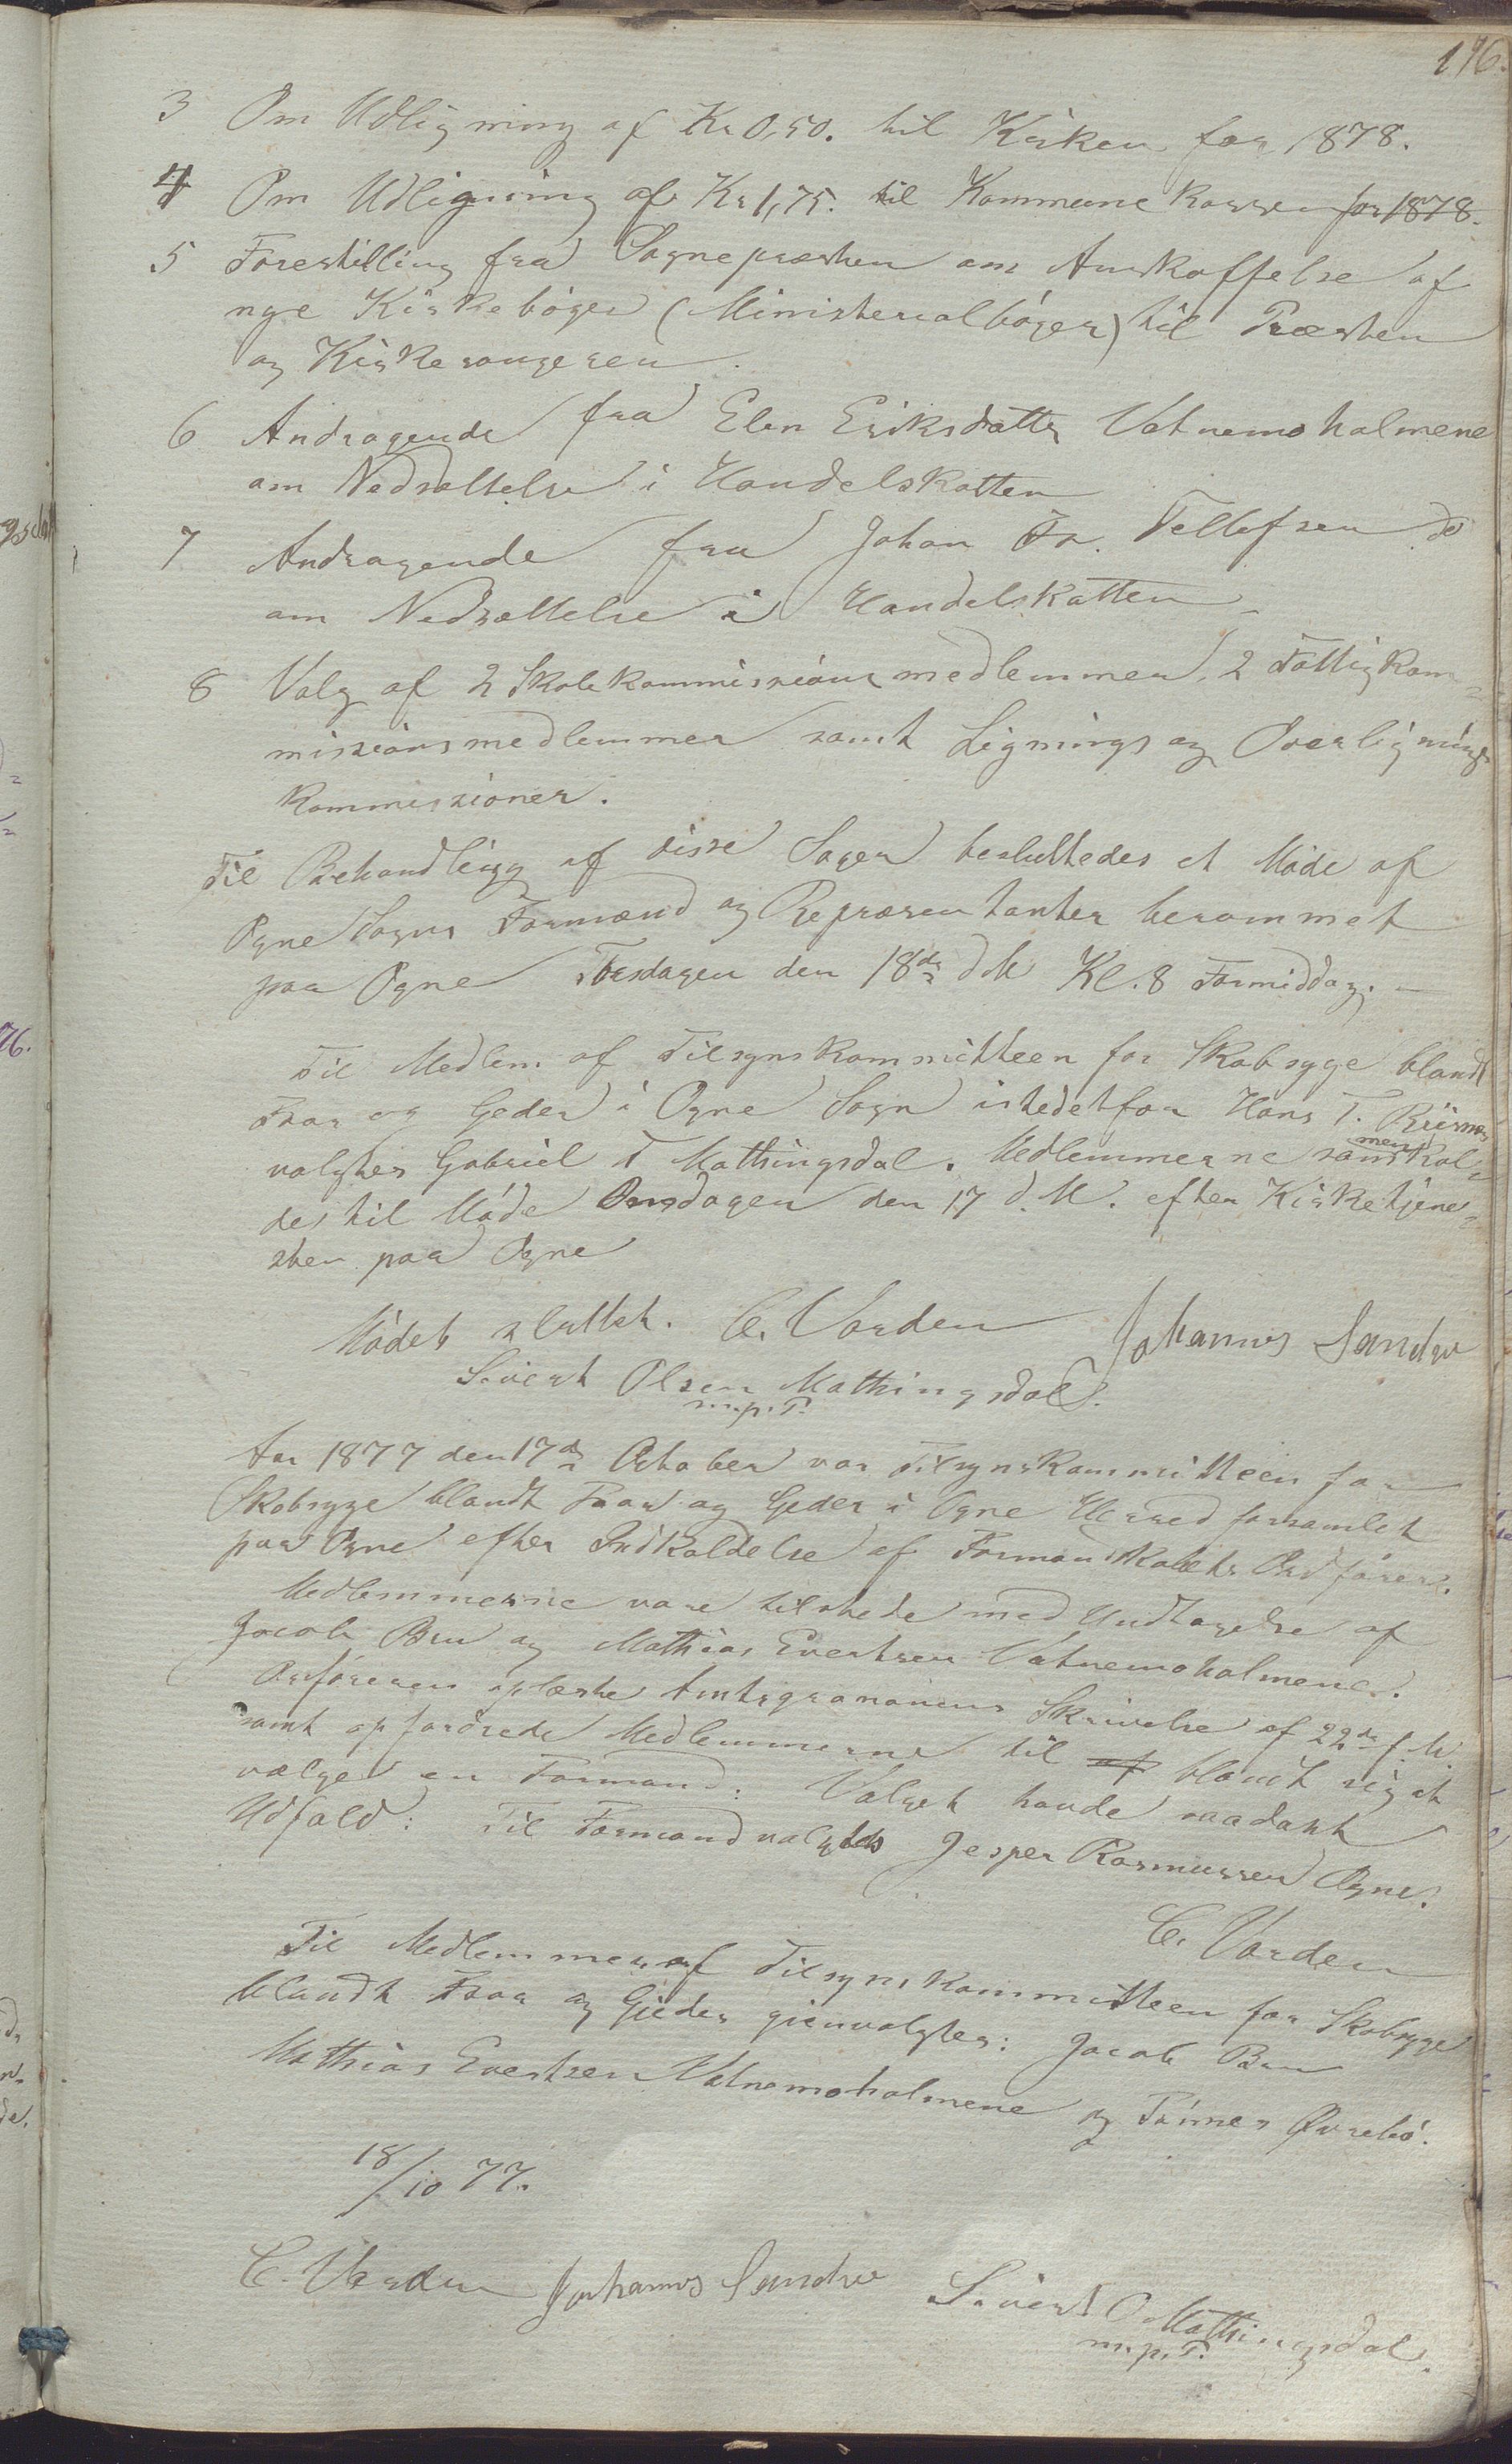 176.
3 Om Udligning af Kr 0,50. til Kirken for 1878.
4 Om Udligning af Kr 1,75. til Kommunekassen for 1878.
5 Forestilling fra Sognepræsten om Anskaffelse af
nye Kirkebøger (Ministerialbøger) til Præsten
og Kirkesangeren.
6 Andragende fra Elen Eriksdatter Vatnemoholmene
om Nedsættelse i Handelskatten
7 Andragende fra Johan Fr. Tellefsen do
om Nedsættelse i Handelskatten
8 Valg af 2 Skolekommissions medlemmer, 2 Fattigkom-
missionsmedlemmer samt Lignings og Overlignings
kommissioner.
Til Behandling af disse Sager besluttedes et Møde af
Ogne Sogns Formænd og Repræsentanter berammet
paa Ogne Torsdagen den 18de d M Kl. 8 Formiddag. —
Til Medlem af Tilsynskommitteen for Skabsyge blandt
Faar og Geder i Ogne Sogn istedetfor Hans T.
valgtes Gabriel T Mathingsdal. Medlemmerne sammenkal-
des til Møde Onsdagen den 17 d. M. efter Kirketjene-
sten paa Ogne
Mødet sluttet. C. Varden Johannes Sandve
Sivert Olsen Mathingsdal.
m.p.P.
Aar 1877 den 17de Oktober var Tilsynskommitteen for
Skabsyge blandt Faar og Geder i Ogne Herred forsamlet
paa Ogne efter Indkaldelse af Formandskabets Ordfører.
Medlemmerne vare tilstede med Undtagelse af
Jacob Bru og Mathias Evertsen Vatnemoholmene.
Ordføreren oplæste Amtsgronomens Skrivelse af 22de f. M.
samt opfordrede Medlemmerne til af blandt sig at
vælge en Formand. Valget havde saadant
Udfald: Til Formand valgtes Jesper Rasmussen Ogne.
C. Varden
Til Medlemmer af Tilsynskommitteen for Skabsyge
blandt Faar og Gjeder gjenvalgtes: Jacob Bru
Mathias Evertsen Vatnemoholmene og Tønnes Øvrebø.
18/10 77.
C. Varden Johannes Sandve Sivert O Mathingsdal.
m.p.P.